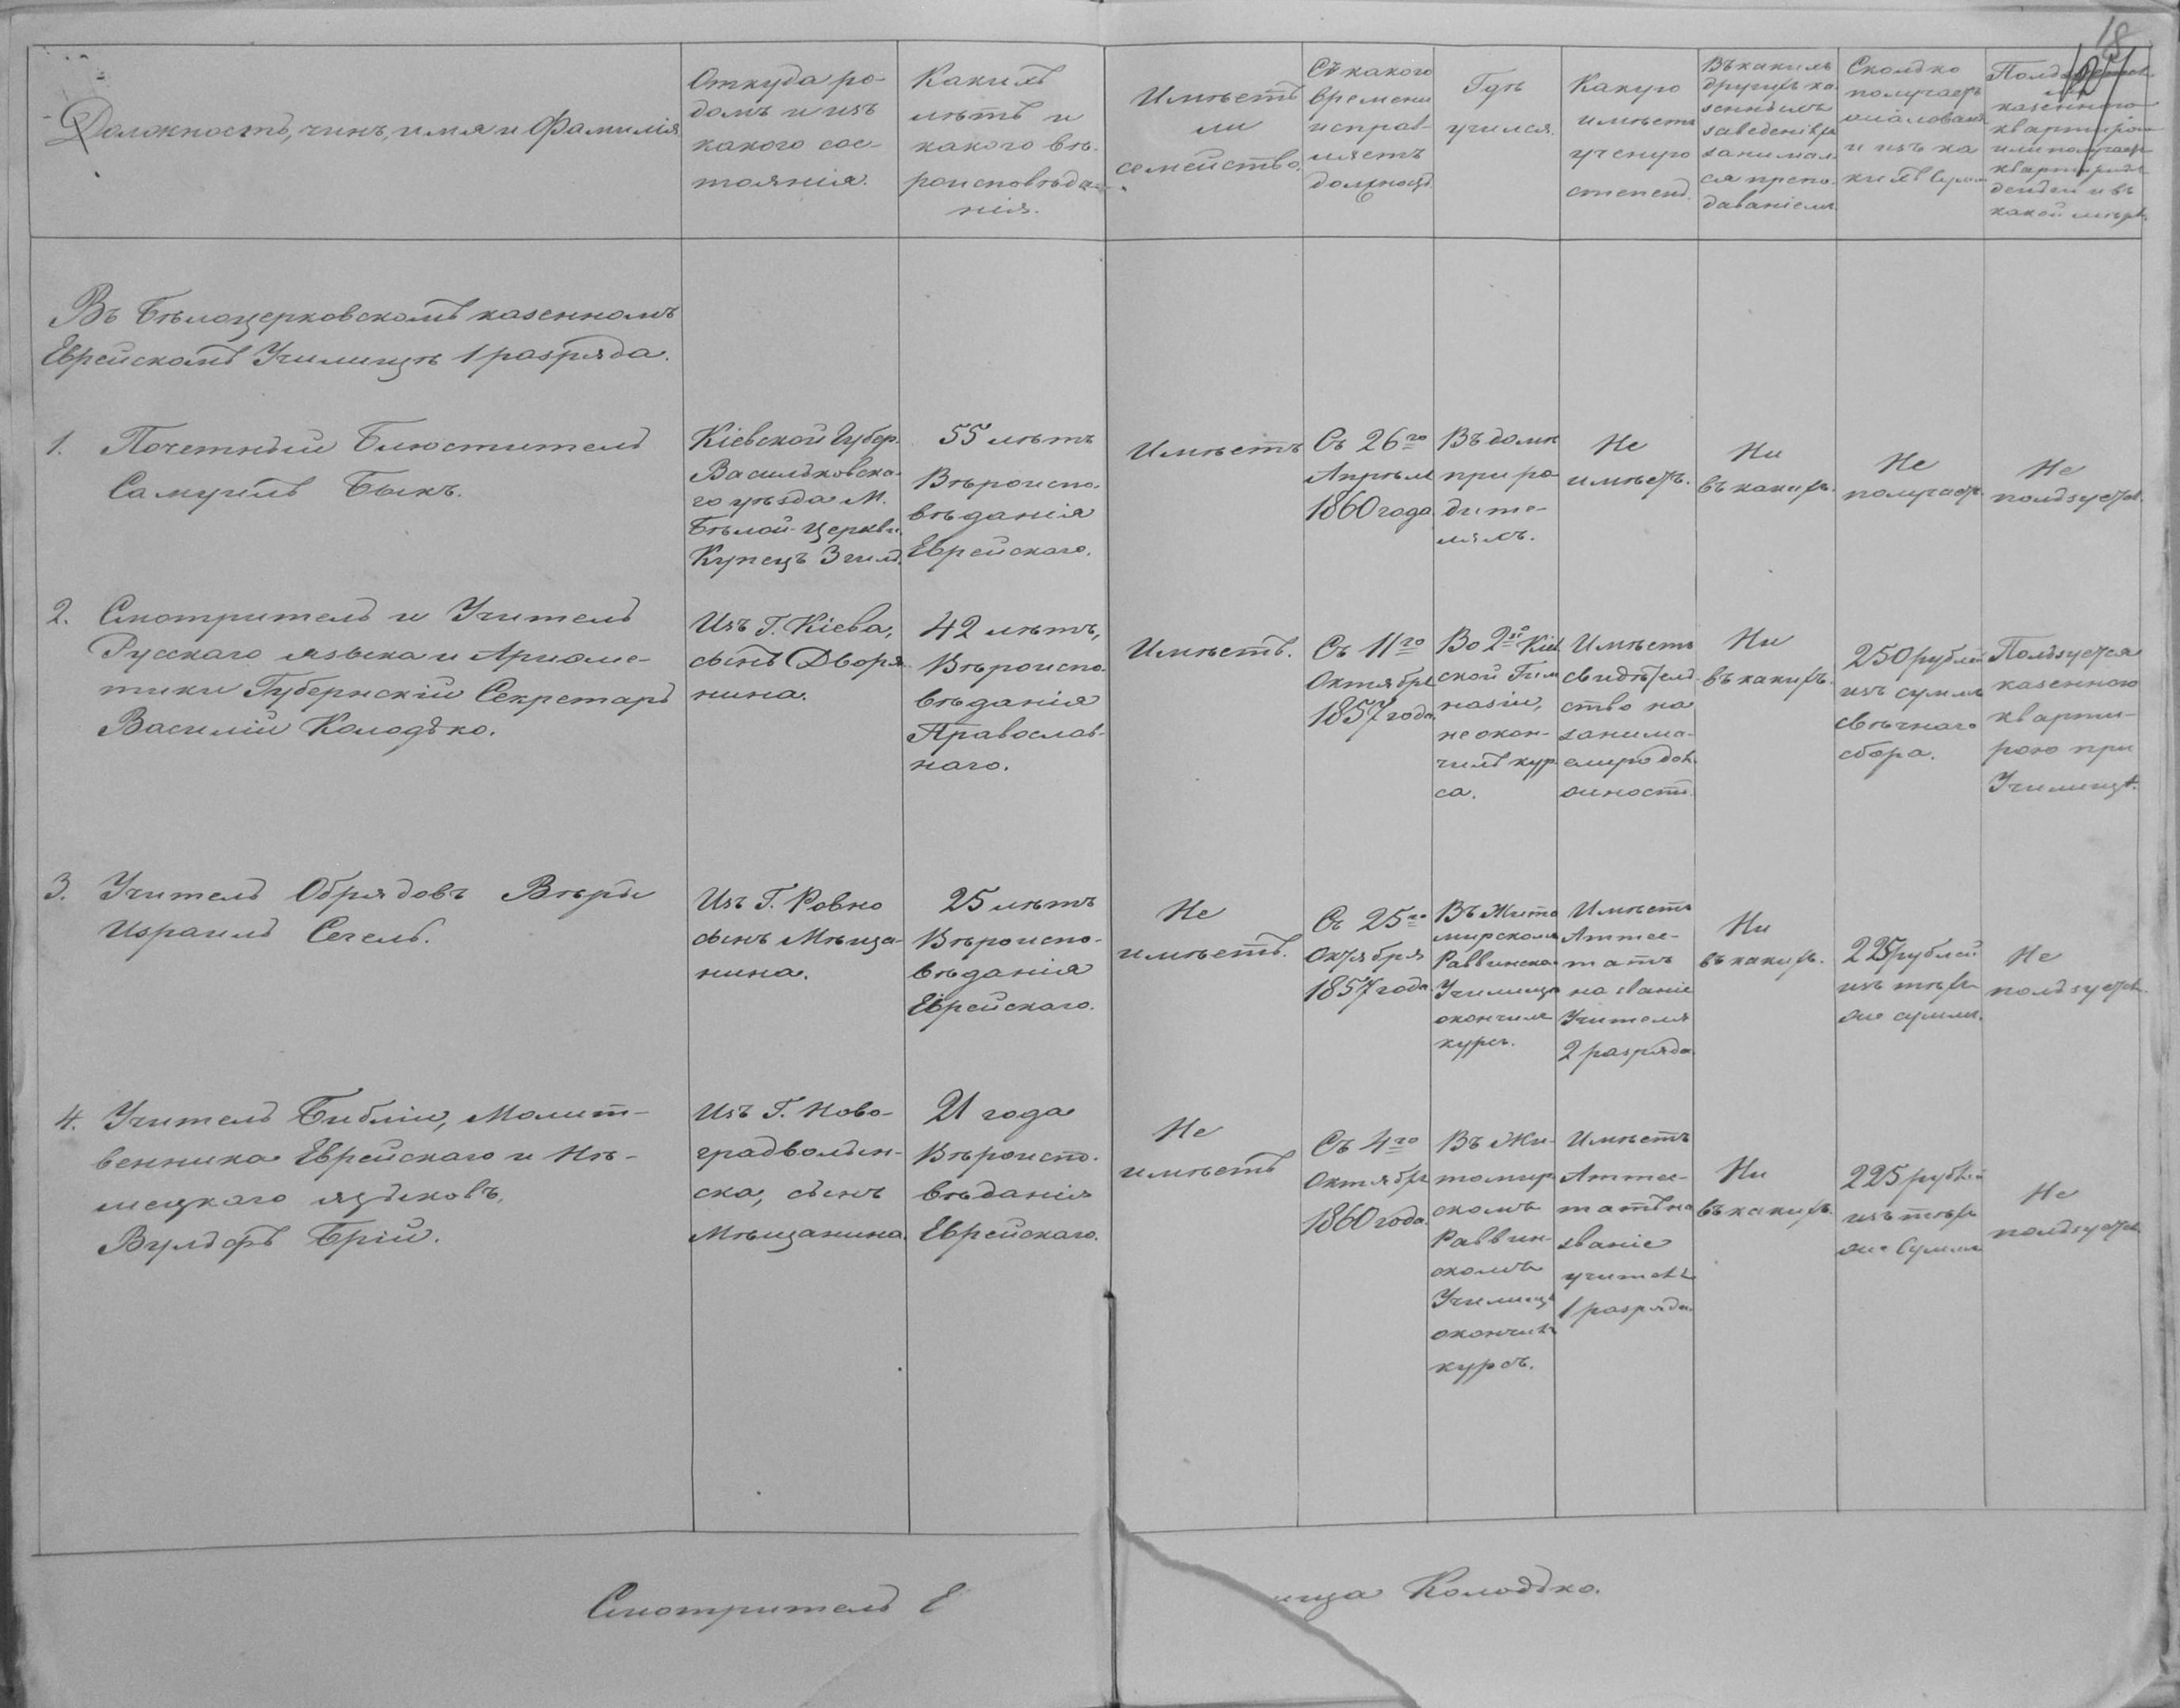 18
Должность, чинъ, имя и Фамилія
Откуда ро-
домъ и изъ
какого сос-
тоянія.
Какихъ
лѣтъ и
какого вѣ-
роисповѣда-
нія.
Имѣетъ
ли
семейство.
Съ какого
времени
исправ-
ляетъ
должность
Гдѣ
учился.
Какую
имѣетъ
ученую
степень.
Въ какихъ
другихъ ка-
зенныхъ
заведеніяхъ
занимал-
ся препо-
даваніемъ.
Сколько
получаетъ
жалованья
и изъ ка-
кихъ суммъ
казенною
квартирою
или получаетъ
деньги и въ
какой мѣрѣ.
Въ Бѣлоцерковскомъ казенномъ
Еврейскомъ Училищѣ 1 разряда.
1. Почетный Блюститель
Самуилъ Быкъ.
Кіевской Губер.
Васильковска-
го уѣзда М.
Бѣлой-Церкви.
Купецъ 3 гильд.
55 лѣтъ
Вѣроиспо-
вѣданія
Еврейскаго.
Имѣетъ
Съ 26го
Апрѣля
1860 года
Въ домѣ
при ро-
дите-
ляхъ.
Не
имѣетъ.
Ни
въ какихъ.
Не
получаетъ.
Не
пользуется.
2. Смотритель и Учитель
Русскаго языка и Ариѳме-
тики Губернскій Секретарь
Василій Колодько.
Изъ Г. Кіева,
сынъ Дворя-
нина.
42 лѣтъ,
Вѣроиспо-
вѣданія
Православ-
наго.
Имѣетъ.
Съ 11го
Октября
1857 года.
Во 2й Кіев
ской Гим
назіи,
не окон-
чилъ кур
са.
Имѣетъ
свидѣтель
ство на
занима-
емую дол
жность.
Ни
въ какихъ.
250 рублей
изъ суммъ
свѣчнаго
сбора.
Пользуется
казенною
кварти-
рою при
Училищѣ.
3. Учитель Обрядовъ Вѣры
Израиль Сегель.
Изъ Г. Ровно
сынъ Мѣща-
нина.
25 лѣтъ
Вѣроиспо-
вѣданія
Еврейскаго.
Не
имѣетъ.
Съ 25го
Октября
1857 года.
Въ Жито
мирскомъ
Раввинско
Училищѣ
окончилъ
курсъ.
Имѣетъ
Аттес-
татъ
на званіе
Учителя
2 разряда
Ни
въ какихъ.
225 рублей
изъ тѣхъ
же суммъ.
Не
пользуется.
4. Учитель Библіи, Молит-
венника Еврейскаго и Нѣ-
мецкаго языковъ,
Вульфъ Брій.
Изъ Г. Ново-
градволын-
ска, сынъ
Мѣщанина.
21 года
Вѣроиспо-
вѣданія
Еврейскаго.
Не
имѣетъ
Съ 4го
Октября
1860 года.
Въ Жи-
томир
скомъ
Раввин-
скомъ
Училищѣ
окончилъ
курсъ.
Имѣетъ
Аттес-
татъ на
званіе
учителя
1 разряда.
Ни
въ какихъ.
225 рублей
изъ тѣхъ
же суммъ
Не
пользуется
Смотритель Е
ища Колодько.